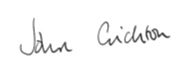 John Crichton